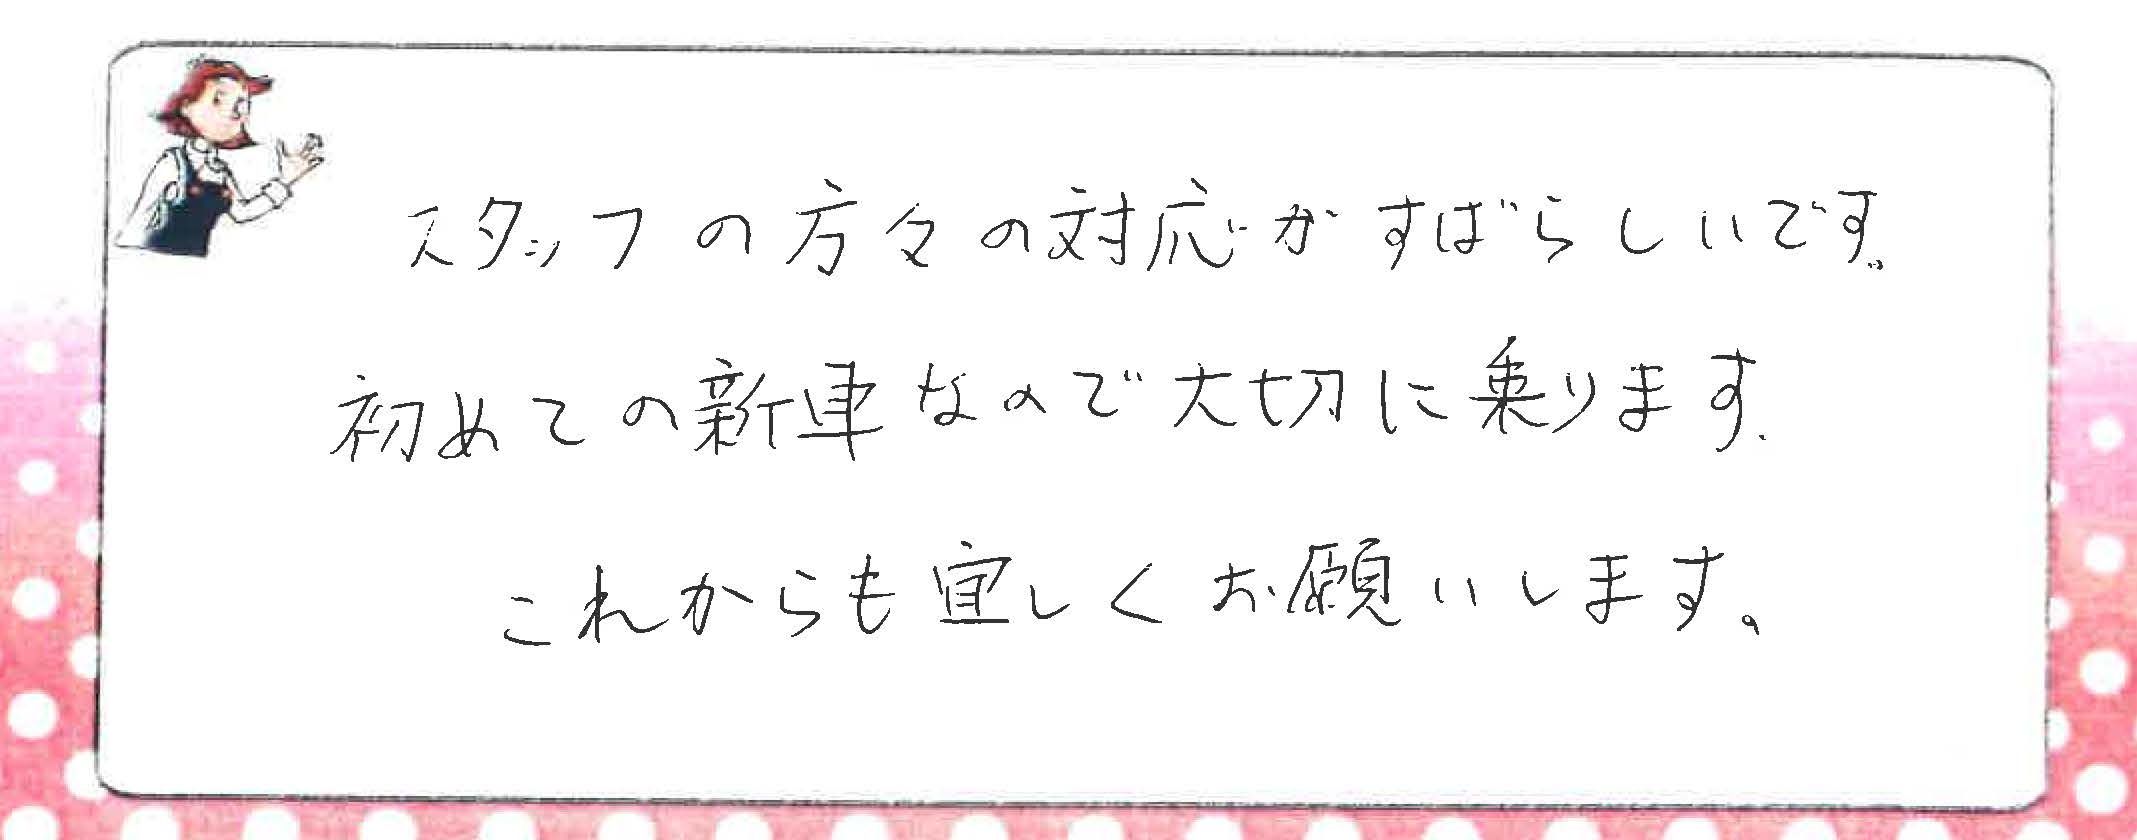 スタッフの方々の対応がすばらしいです。
初めての新車なので大切に乗ります.
これからも宜しくお願いします。